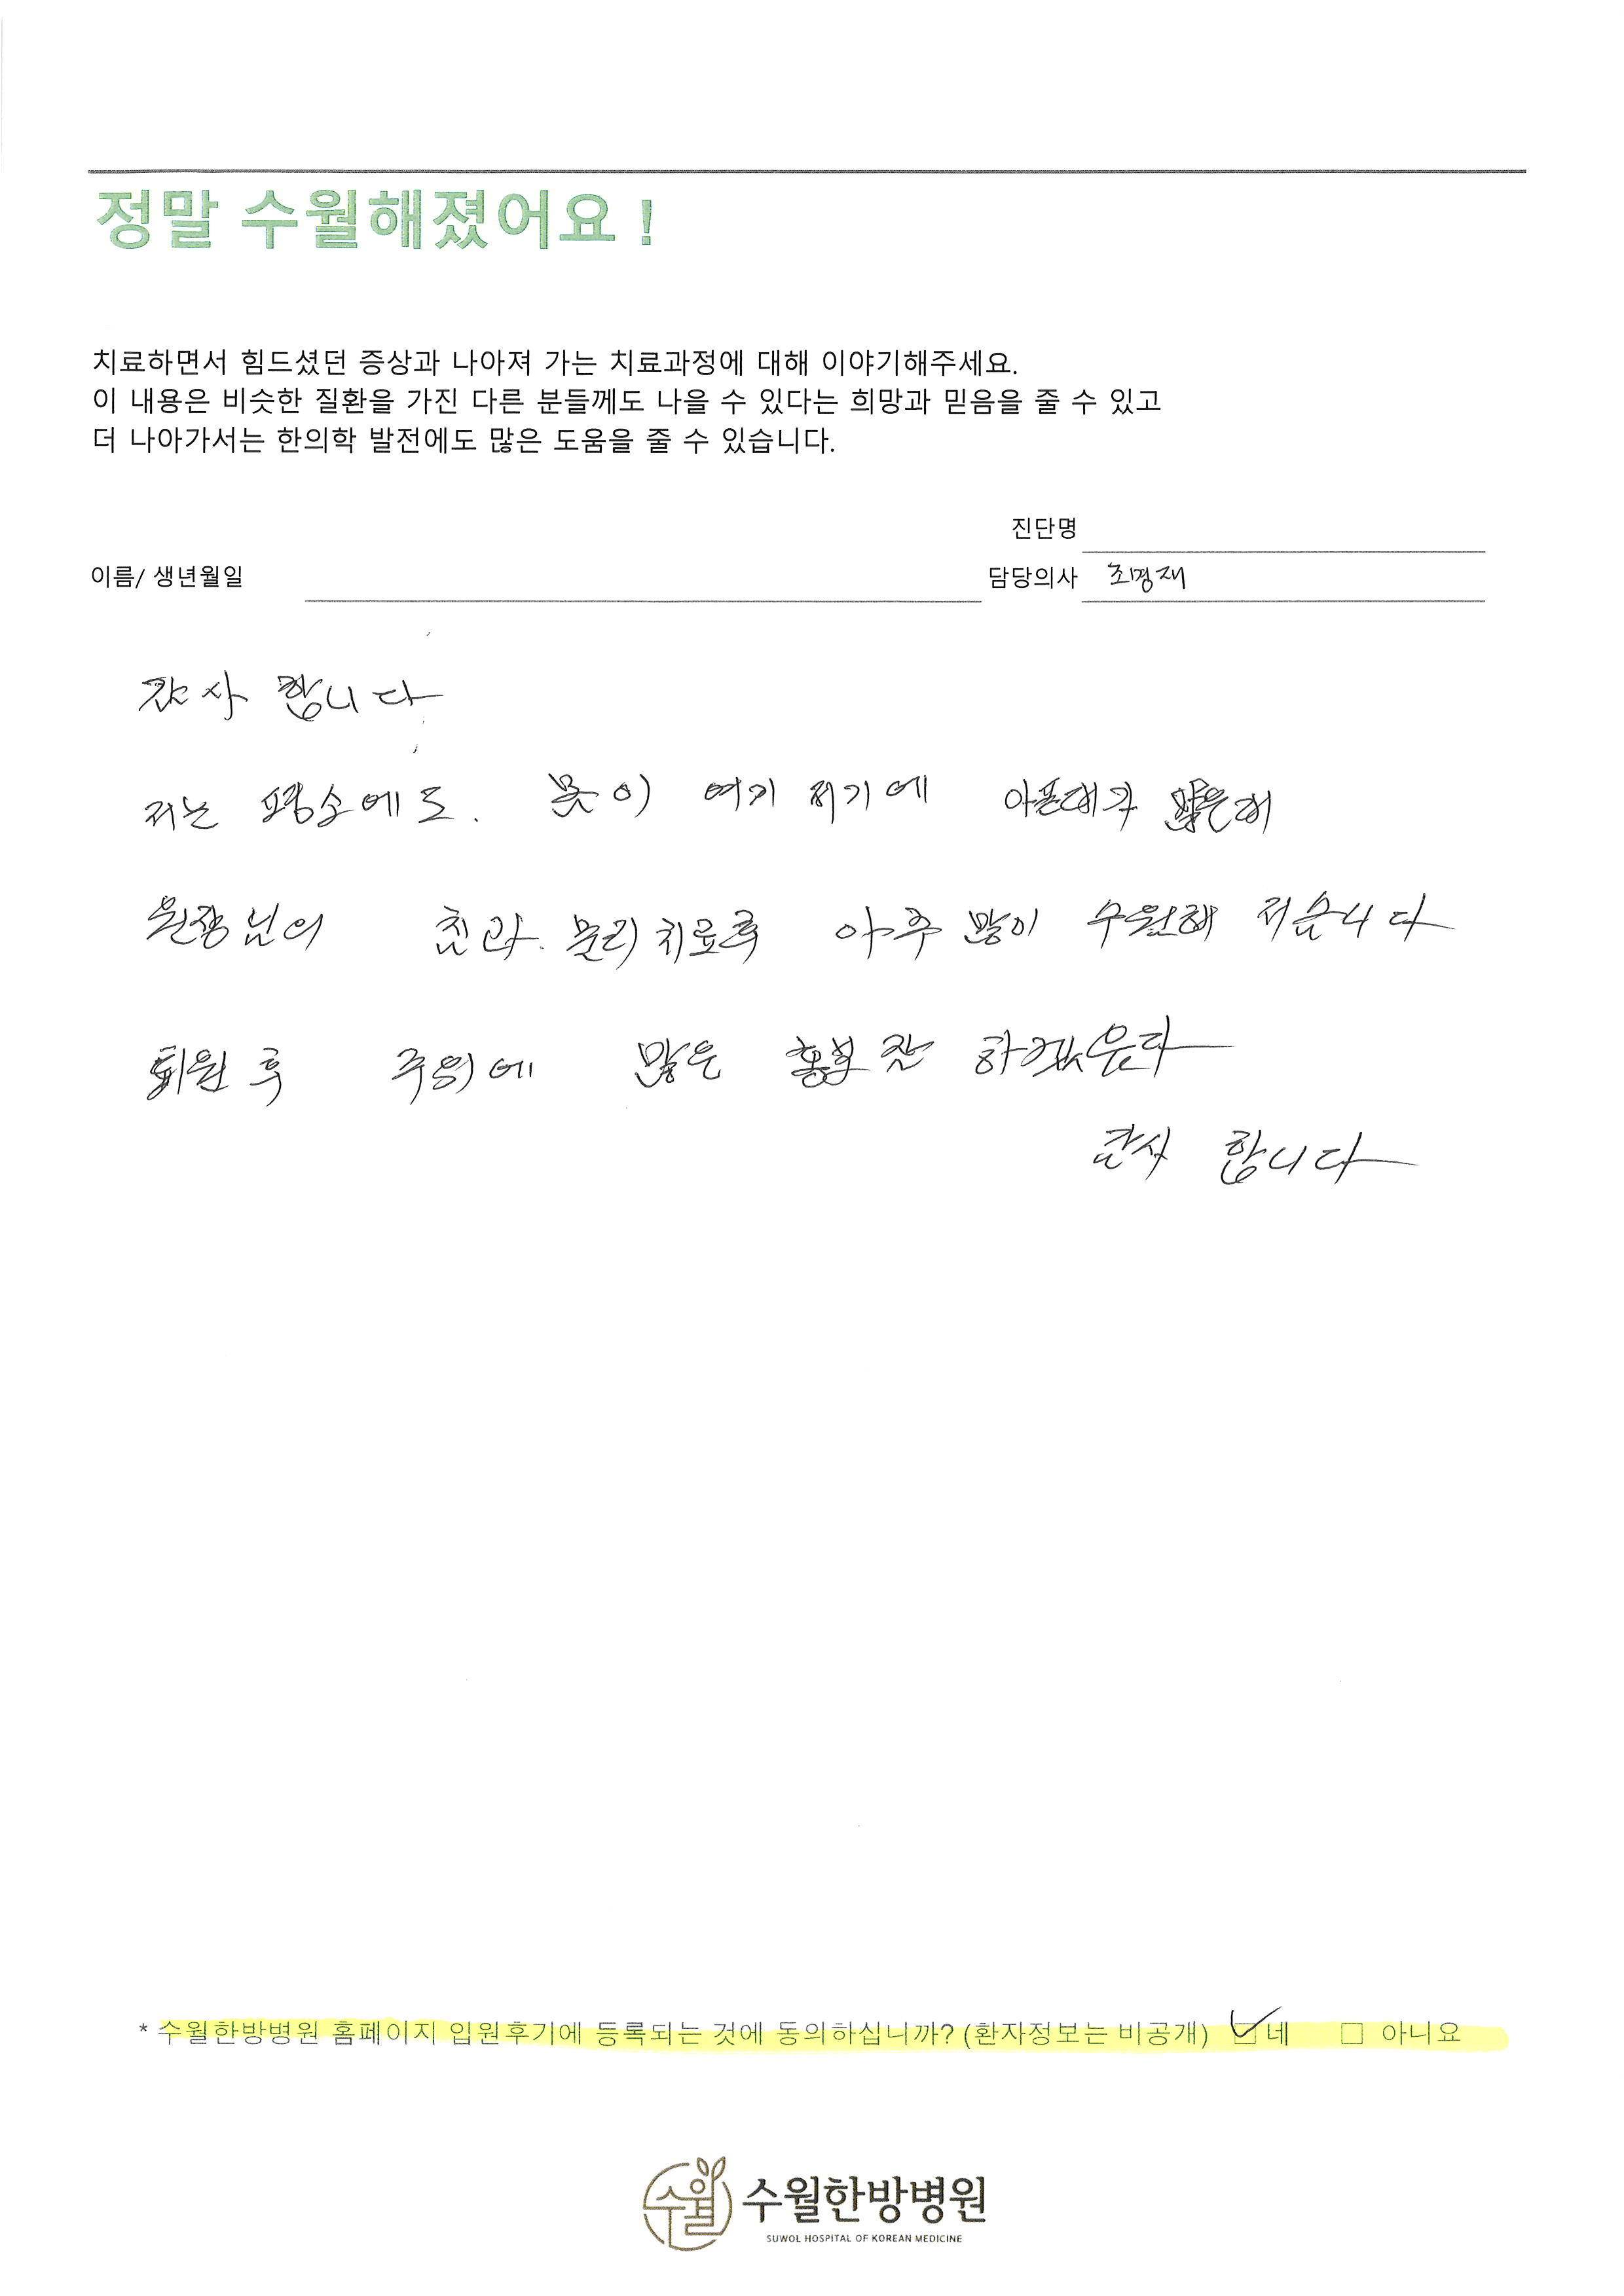 정말 수월해졌어요 !
치료하면서 힘드셨던 증상과 나아져 가는 치료과정에 대해 이야기해주세요.
이 내용은 비슷한 질환을 가진 다른 분들께도 나을 수 있다는 희망과 믿음을 줄 수 있고
더 나아가서는 한의학 발전에도 많은 도움을 줄 수 있습니다.
진단명
이름/ 생년월일 담당의사 조경재
감사 합니다
저는 평소에도. 몸이 여기 저기에 아픈데가 많은데
원장님의 침과. 물리치료후 아주 많이 수월해 저습니다
퇴원후 주위에 많은 홍부 하겠읍다
감사 합니다
* 수월한방병원 홈페이지 입원후기에 등록되는 것에 동의하십니까? (환자정보는 비공개) ☑네 □ 아니요
수월 수월한방병원
SUWOL HOSPITAL OF KOREAN MEDICINE